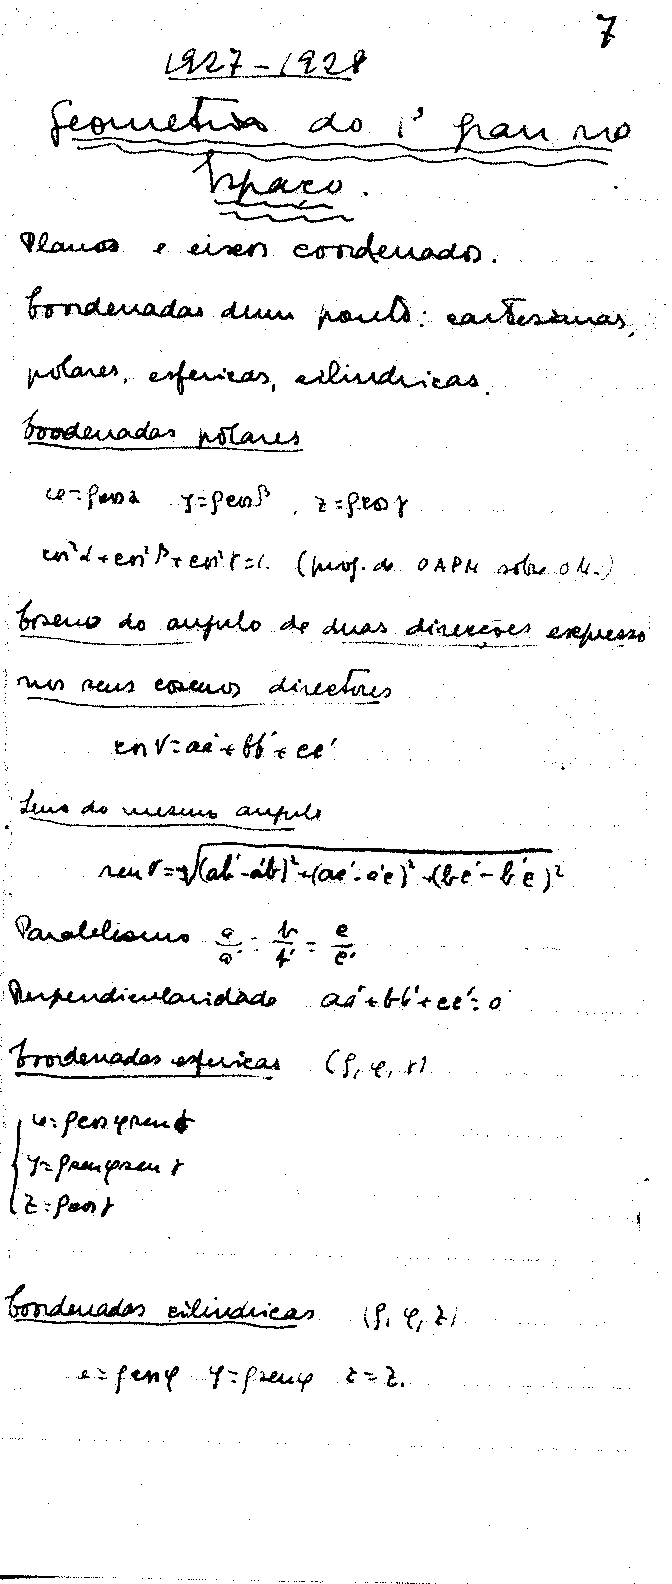 7
1927-1928
Geometria do 1º grau no
Espaço.
Planos e eixos coordenados.
Coordenadas dum ponto: cartesianas,
polares, esfericas, cilindricas.
Coordenadas polares
x=ρcosα y=ρcosβ, z=ρcosγ
cos²α+cos²β+cos²γ=1. (proj. de OAPM sobre OM.)
Coseno do angulo de duas direcções expresso
nos seus cosenos directores
cosV=aa'+bb'+cc'
Seno do mesmo angulo
senV=√(ab'-a'b)²+(ac'-a'c)²+(bc'-b'c)²
Paralelismo a/a'=b/b'=c/c'
Perpendicularidade aa'+bb'+cc'=0
Coordenadas esfericas (ρ, φ, γ)
x=ρcosφsenγ
y=ρsenφsenγ
z=ρcosγ
Coordenadas cilindricas (ρ, φ, z)
x=ρcosφ y=ρsenφ z=z.